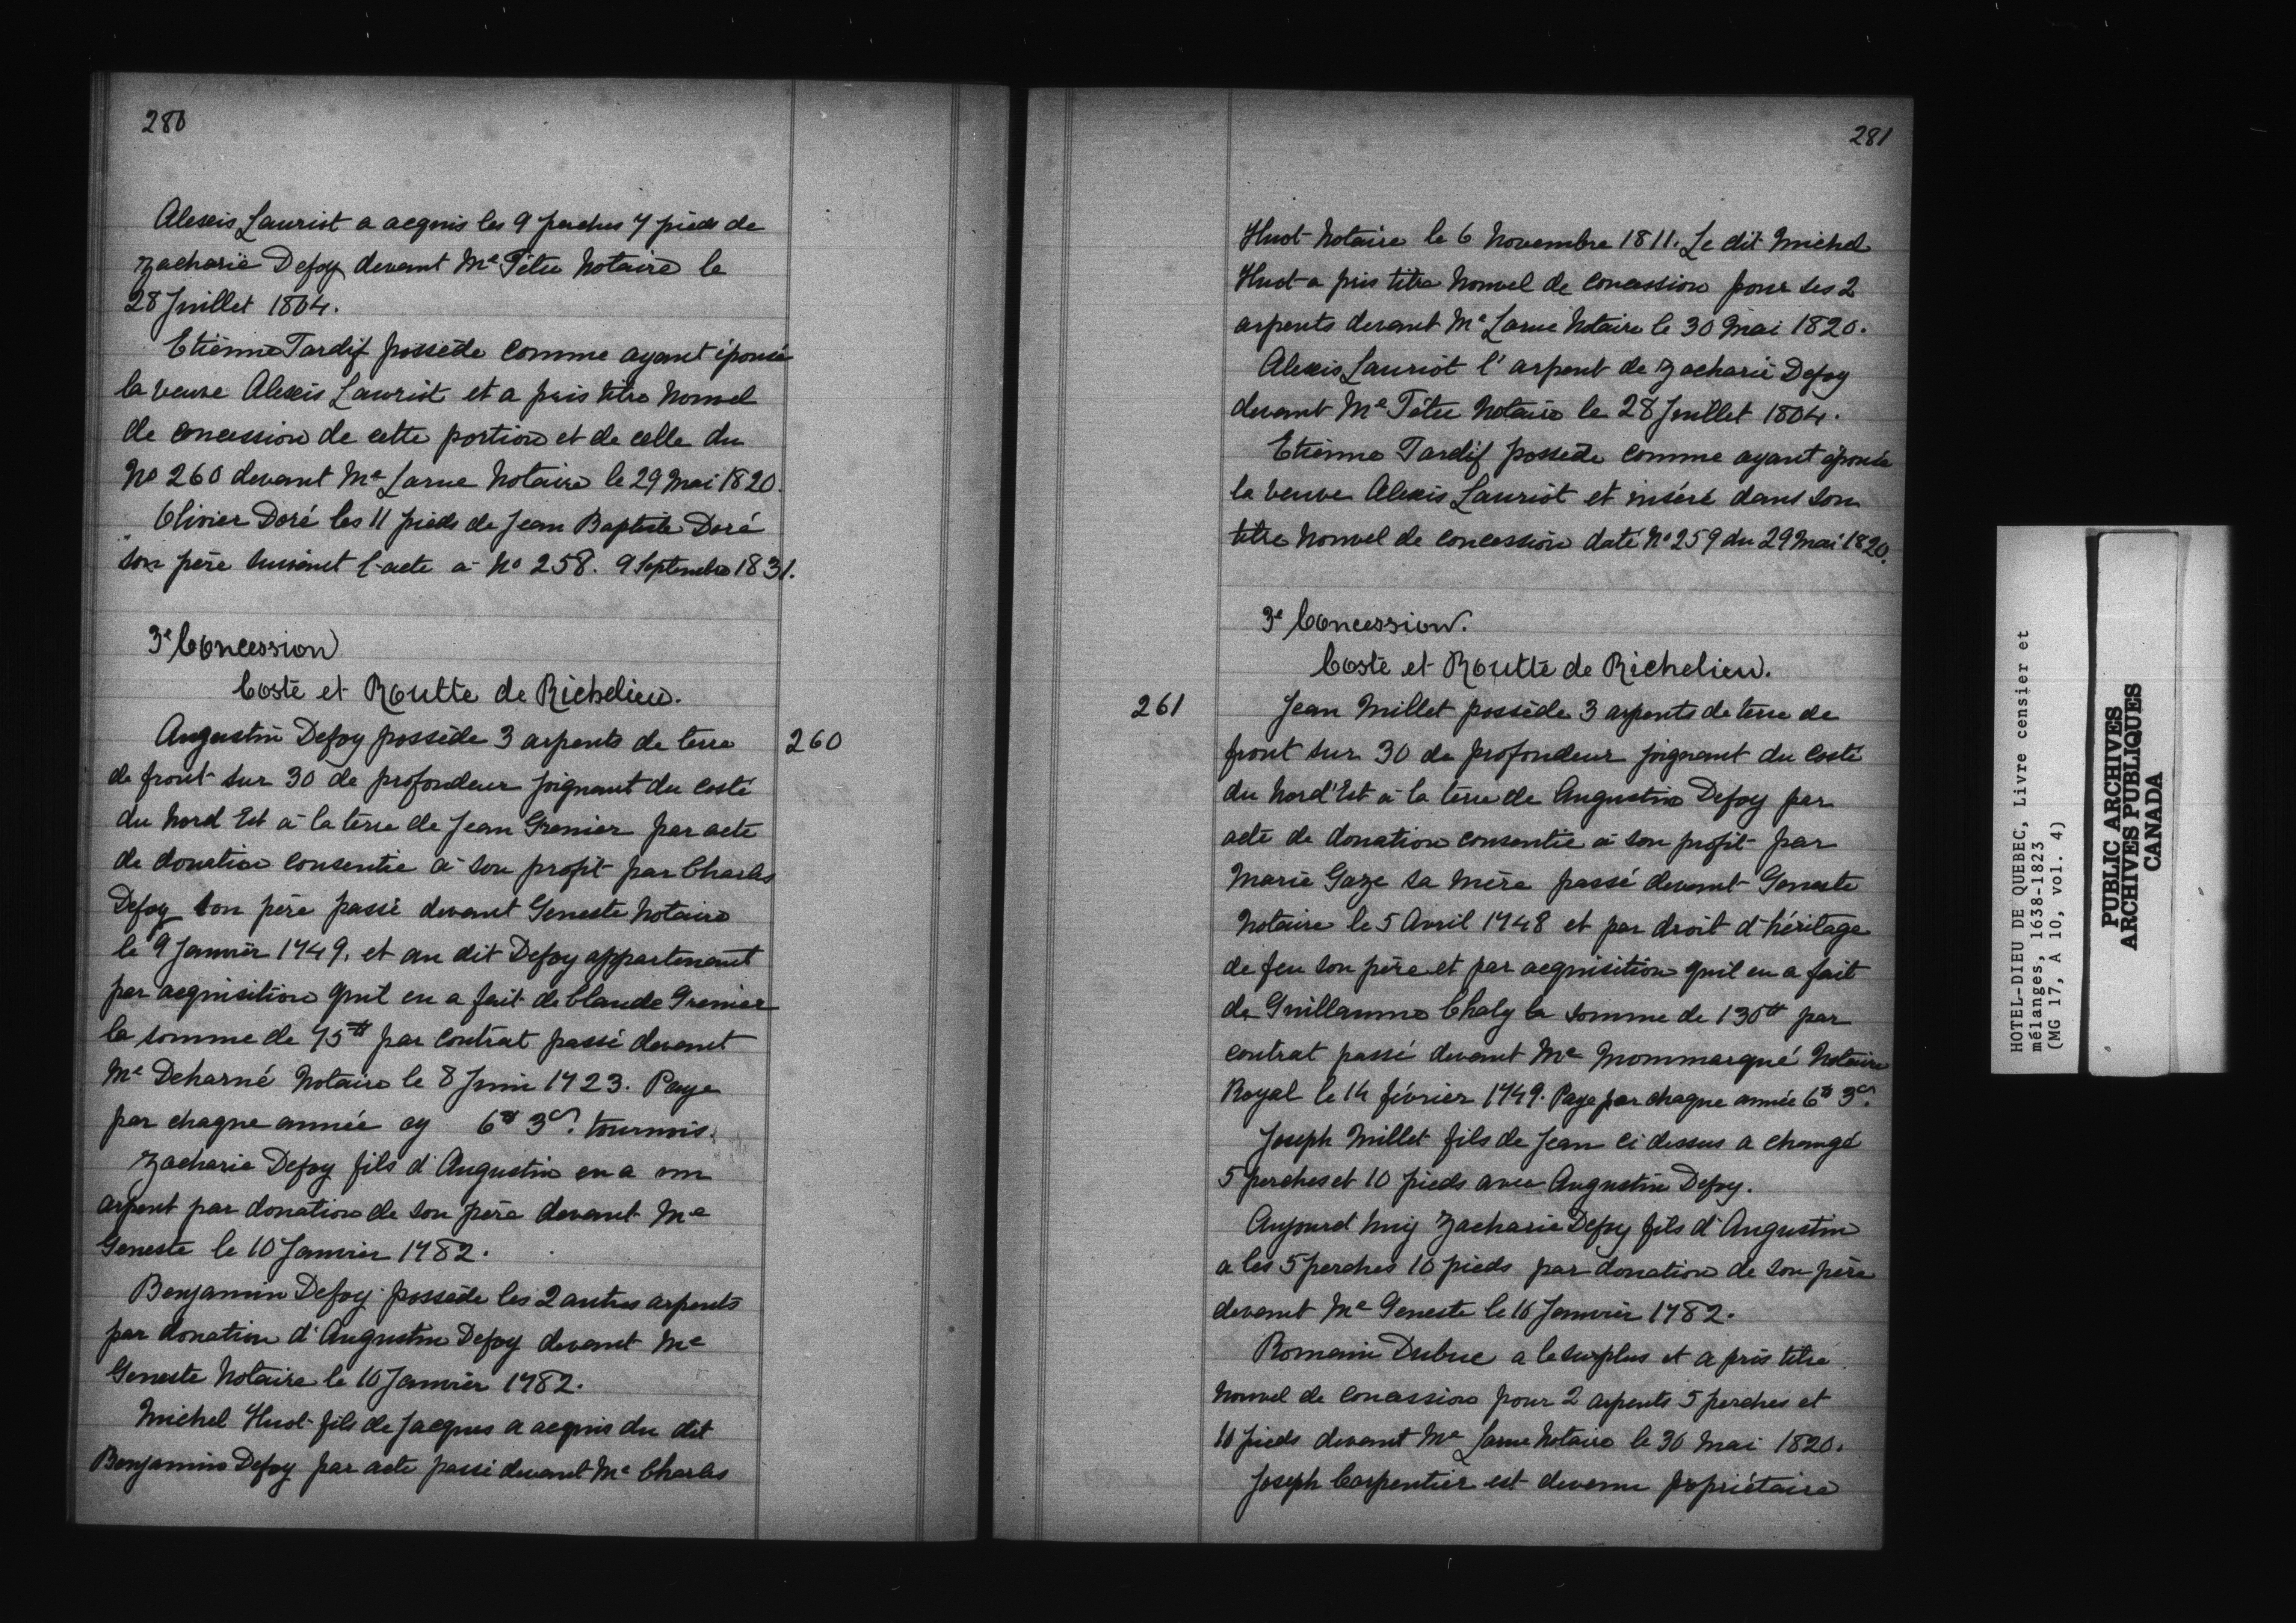 280
Alexis Lauriot a acquis les 9 perches 7 pieds de
Zacharie Defoy devant Me Tétu Notaire le
28 Juillet 1804.
Etienne Tardif possède comme ayant épousé
la veuve Alexis Lauriot et a pris titre nouvel
de concession de cette portion et de celle du
No 260 devant Me Larue Notaire le 29 Mai 1820.
Olivier Doré les 11 pieds de Jean Baptiste Doré
son père suivant l'acte à No 258. 9 Septembre 1831.
3e Concession
Costé et Routte de Richelieu.
260
Augustin Defoy possède 3 arpents de terre
de front sur 30 de profondeur joignant du costé
du Nord Est à la terre de Jean Grenier par acte
de donation consentie à son profit par Charles
Defoy son père passé devant Geneste Notaire
le 9 Janvier 1749, et au dit Defoy appartenant
par acquisition quil en a fait de Claude Grenier
la somme de 75tt par contrat passé devant
Me Deharné Notaire le 8 Juin 1723. Paye
par chaque année cy 6tt 3s. tournois.
Zacharie Defoy fils d'Augustin en a un
arpent par donation de son père devant Me
Geneste le 10 Janvier 1782.
Benjamin Defoy possède les 2 autres arpents
par donation d'Augustin Defoy devant Me
Geneste Notaire le 10 Janvier 1782.
Michel Huot fils de Jacques a acquis du dit
Benjamin Defoy par acte passé devant Me Charles
281
Huot Notaire le 6 Novembre 1811. Le dit Michel
Huot a pris titre nouvel de concession pour ses 2
arpents devant Me Larue Notaire le 30 Mai 1820.
Alexis Lauriot l'arpent de Zacharie Defoy
devant Me Tétu Notaire le 28 Juillet 1804.
Etienne Tardif possède comme ayant épousé
la veuve Alexis Lauriot et inséré dans son
titre nouvel de concession daté No 259 du 29 Mai 1820.
3e Concession.
Costé et Routte de Richelieu.
261
Jean Millet possède 3 arpents de terre de
front sur 30 de profondeur joignant du costé
du Nord'Est à la terre de Augustin Defoy par
acte de donation consentie à son profit par
Marie Gaze sa mère passé devant Geneste
Notaire le 5 Avril 1748 et par droit d'héritage
de feu son père et par acquisition quil en a fait
de Guillaume Chaly la somme de 130tt par
contrat passé devant Me Mommarqué Notaire
Royal le 14 février 1749. Paye par chaque année 6tt 3s.
Joseph Millet fils de Jean ci dessus a changé
5 perches et 10 pieds avec Augustin Defoy.
Aujourd huy Zacharie Defoy fils d'Augustin
a les 5 perches 10 pieds par donation de son père
devant Me Geneste le 10 Janvier 1782.
Romain Dubuc a le surplus et a pris titre
nouvel de concession pour 2 arpents 5 perches et
10 pieds devant Me Larue Notaire le 30 Mai 1820.
Joseph Carpentier est devenu propriétaire
HOTEL-DIEU DE QUEBEC, Livre censier et
mélanges, 1638-1823
(MG 17, A 10, vol. 4)
PUBLIC ARCHIVES
ARCHIVES PUBLIQUES
CANADA